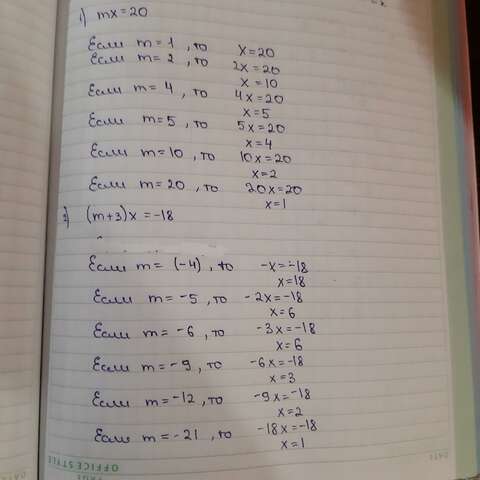 1) mx=20
Если m=1, то x=20
Если m=2, то 2x=20
x=10
Если m=4, то 4x=20
x=5
Если m=5, то 5x=20
x=4
Если m=10, то 10x=20
x=2
Если m=20, то 20x=20
x=1
2) (m+3)x=-18
Если m=(-4), то -x=-18
x=18
Если m=-5, то -2x=-18
x=6
Если m=-6, то -3x=-18
x=6
Если m=-9, то -6x=-18
x=3
Если m=-12, то -9x=-18
x=2
Если m=-21, то -18x=-18
x=1
OFFICE STYLE
DATE